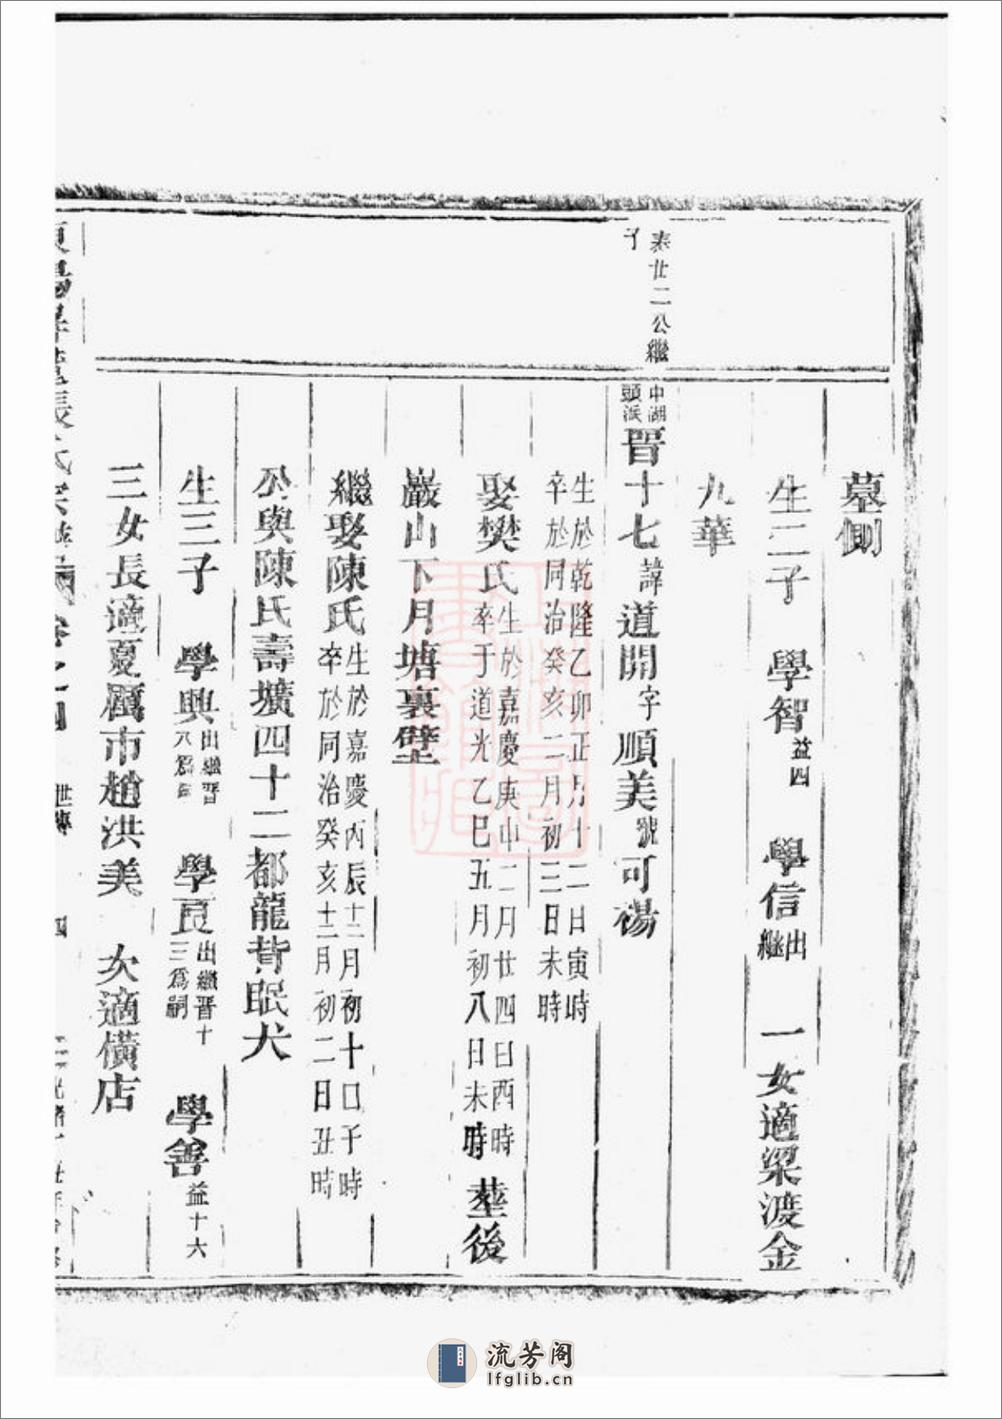 墓側
生二子　學智益四　學信出繼　一女適梁渡金
九華
泰廿二公繼子
中湖頭派晋十七諱道開字順美號可楊
生於乾隆乙卯正月十二日寅時
卒於同治癸亥二月初三日未時
娶樊氏生於嘉慶庚申二月廿四日酉時卒于道光乙巳五月初八日未時塟後
巖山下月塘裏壁
繼娶陳氏生於嘉慶丙辰十二月初十日子時卒於同治癸亥十二月初二日丑時
公與陳氏壽壙四十二都龍背眠犬
生三子　學興出繼晋八爲　學良出繼晋十三爲嗣　學善益十六
三女長適夏厲市趙洪美　次適橫店
張氏宗譜　卷之四　世傳　四
流芳阁
lfglib.cn